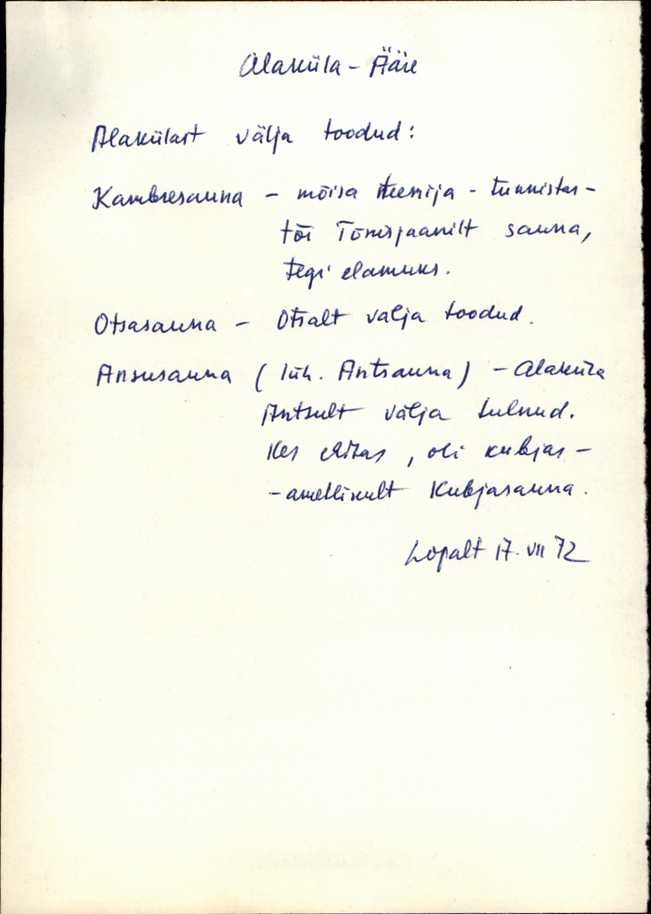 Alaküla - Ääre
Alakülast välja toodud:
Kambresauna - mõisa teenija - tunnistas-
tõi Tõnisjaanilt sauna,
tegi elamuks.
Otsasauna - Otsalt välja toodud.
Ansusauna (lüh. Antsauna) - Alaküla
Antsult välja tulnud.
Kes elitas, oli kubjas -
- ametlikult Kubjasauna.
Lopalt 17. VII 72